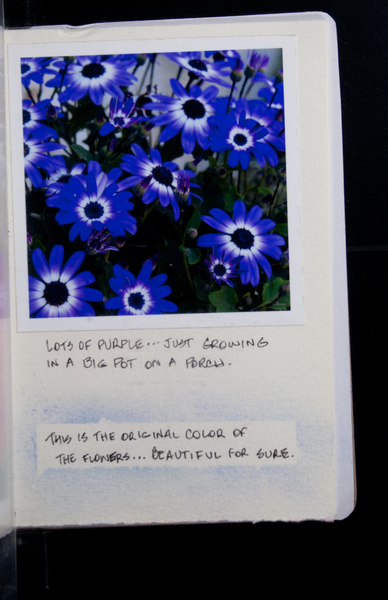 LOTS OF PURPLE... JUST GROWING
IN A BIG POT ON A PORCH.
THIS IS THE ORIGINAL COLOR OF
THE FLOWERS... BEAUTIFUL FOR SURE.